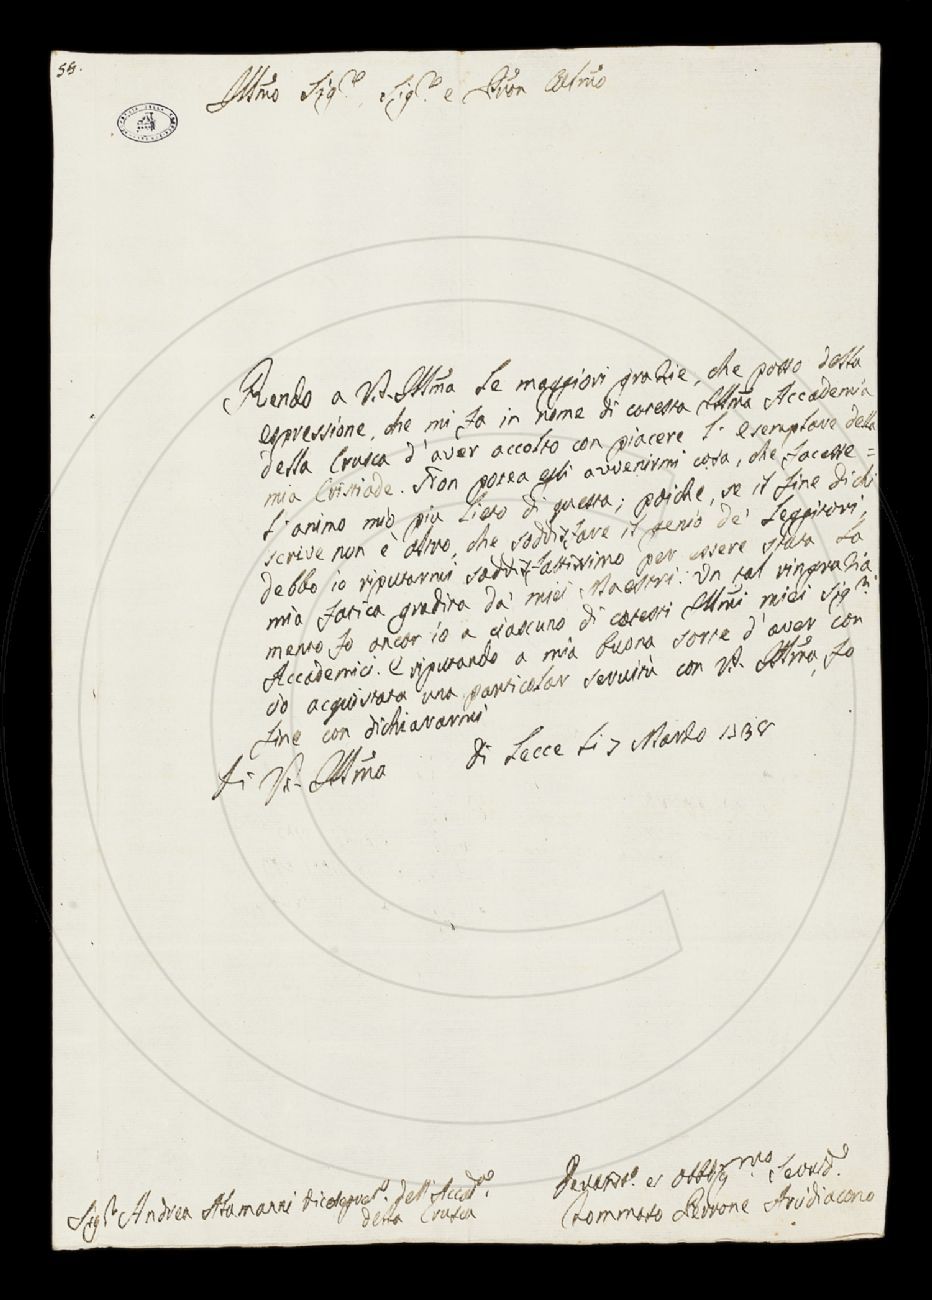 58.
Ill.mo Sig.re, Sig.re e Pron Col.mo
Rendo a V.S. Ill.ma le maggiori grazie, che posso della
espressione, che mi fa in nome di cotesta Ill.ma Accademia
della Crusca d'aver accolto con piacere l'esemplare della
mia Cristiade. Non potea egli avvenirmi cosa, che facesse =
l'animo mio più lieto di questa; poichè, se il fine di chi
scrive non è altro, che soddisfare il genio de' leggitori,
debbo io riputarmi soddisfattissimo per essere stata la
mia fatica gradita da' miei Maestri. Un tal ringrazia
mento fo ancor io a ciascuno di cotesti Ill.mi miei Sig.ri
Accademici. E riputando a mia buona sorte d'aver con
ciò acquistata una particolar servitù con V.S. Ill.ma, fo
fine con dichiararmi
Di V.S. Ill.ma
Di Lecce li 7 Marzo 1738
Devotiss.o et obblig.mo Servid.e
Sig.re Andrea Alamanni Vicesegret.o dell'Accad.a
della Crusca
Tommaso Perrone Arcidiacono